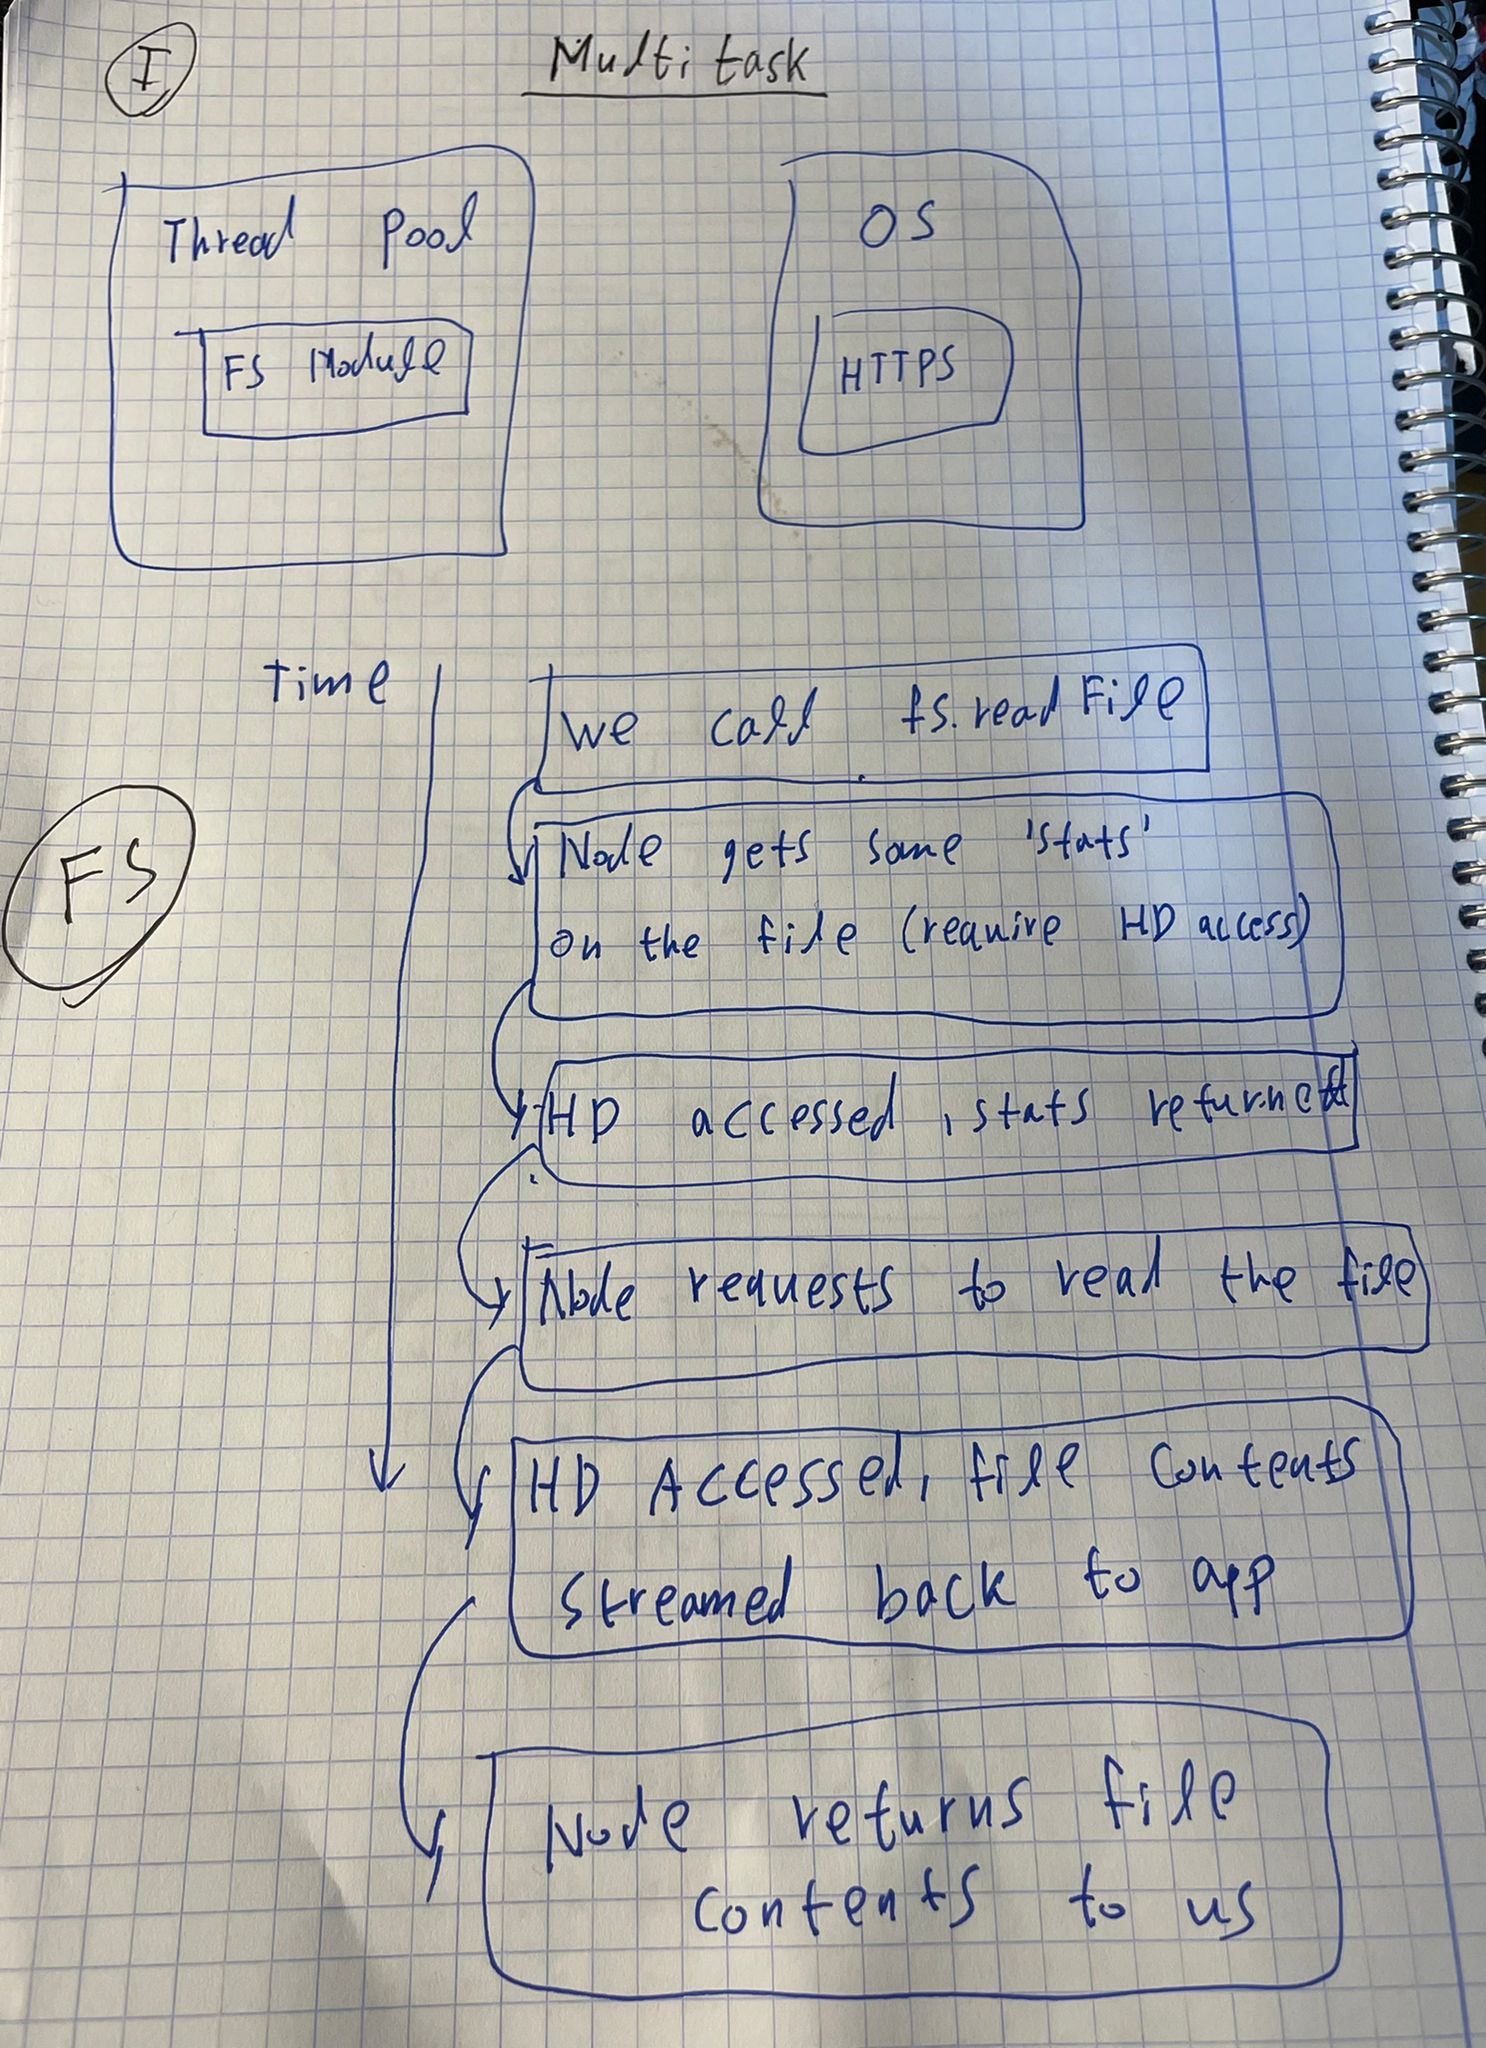 I
Multi task
Thread Pool
FS Module
OS
HTTPS
Time
FS
We call fs.readFile
Node gets some 'stats'
on the file (require HD access)
HD accessed, stats returned
Node requests to read the file
HD Accessed, file contents
streamed back to app
Node returns file
contents to us